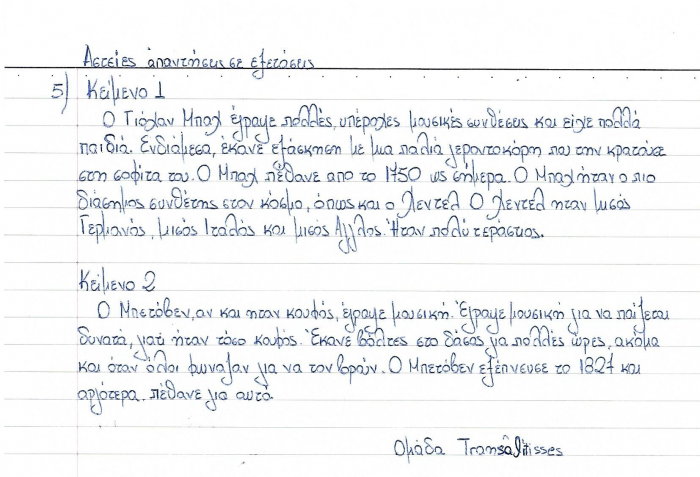 Αστείες απαντήσεις σε εξετάσεις
5) Κείμενο 1
Ο Γιόχαν Μπαχ έγραψε πολλές, υπέροχες μουσικές συνθέσεις και είχε πολλά
παιδιά. Ενδιάμεσα, έκανε εξάσκηση με μια παλιά γεροντοκόρη που την κρατούσε
στη σοφίτα του. Ο Μπαχ πέθανε απο το 1750 ως σήμερα. Ο Μπαχ ήταν ο πιο
διάσημος συνθέτης στον κόσμο, όπως και ο Χεντελ Ο Χεντελ ηταν μισός
Γερμανός, μισός Ιταλός και μισός Αγγλος. Ήταν πολύ τεράστιος.
Κείμενο 2
Ο Μπετόβεν, αν και ηταν κουφός, έγραψε μουσική. Έγραψε μουσική για να παίζεται
δυνατά, γιατί ήταν τόσο κουφός. Έκανε βόλτες στο δάσος για πολλές ώρες, ακόμα
και όταν όλοι φωναζαν για να τον βρούν. Ο Μπετόβεν εξέπνευσε το 1827 και
αργότερα. πέθανε για αυτο
Ομάδα